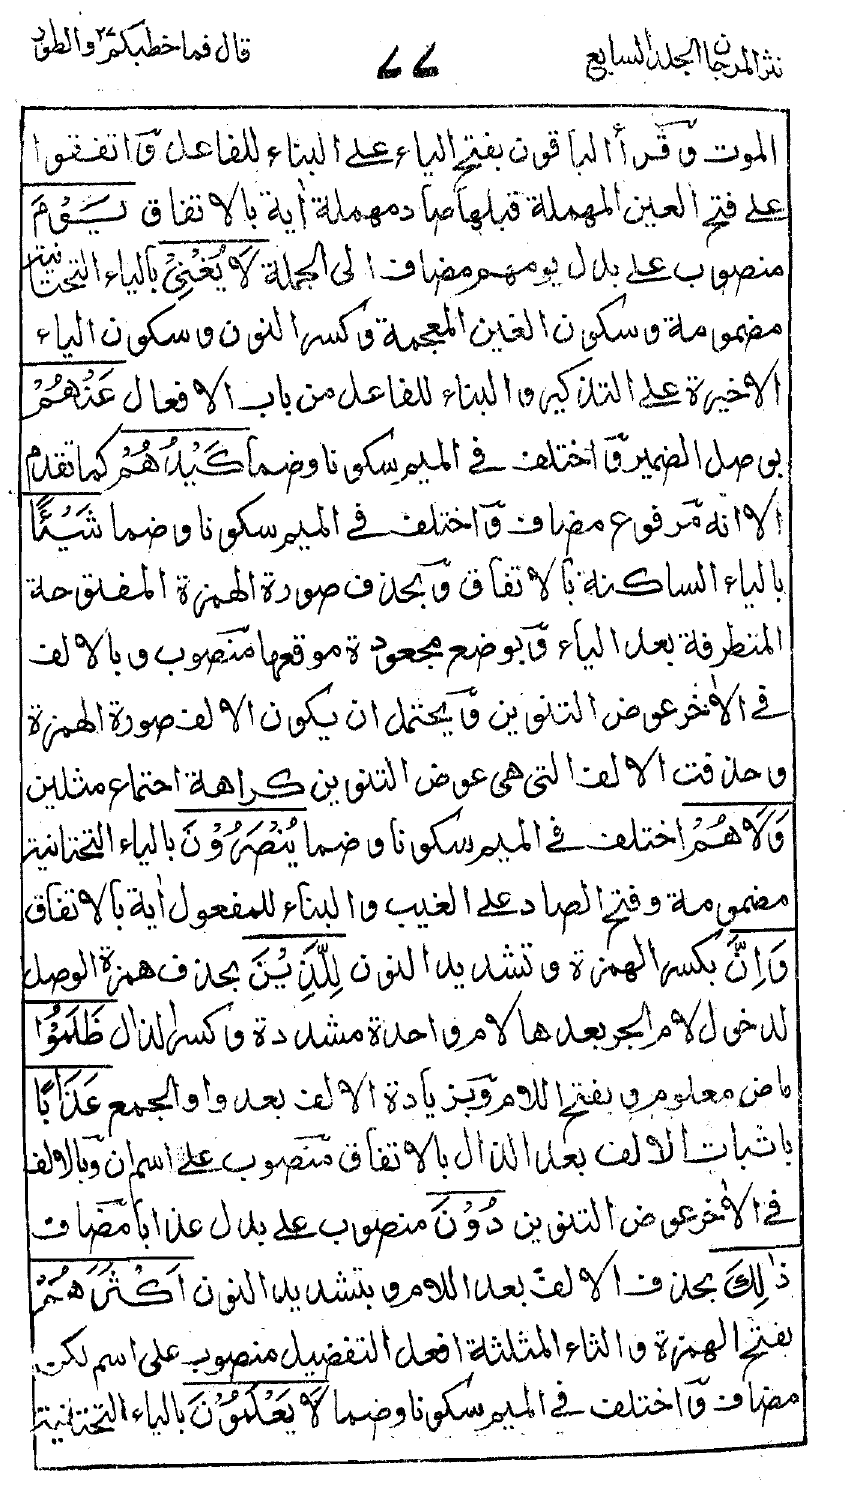 نثر المرجان الجلد السابع
٧٧
قال فما خطبكم ٢٧ والطور
الموت وقرأ الباقون بفتح الياء على البناء للفاعل واتفقوا
على فتح العين المهملة قبلها صاد مهملة أية بالاتفاق يَوْمَ
منصوب على بدل يومهم مضاف الى الجملة لَا يُغْنِيْ بالياء التحتانية
مضمومة وسكون الغين المعجمة وكسر النون وسكون الياء
الاخيرة على التذكير والبناء للفاعل من باب الافعال عَنْهُمْ
بوصل الضمير واختلف في الميم سكونا وضما كَيْدُهُمْ كما تقدم
الا انه مرفوع مضاف واختلف في الميم سكونا وضما شَيْئًا
بالياء الساكنة بالاتفاق وبحذف صورة الهمزة المفتوحة
المتطرفة بعد الياء وبوضع مجعودة موقعها منصوب وبالالف
في الأخر عوض التنوين ويحتمل ان يكون الالف صورة الهمزة
وحذفت الالف التي هى عوض التنوين كراهة اجتماع مثلين
وَلَا هُمْ اختلف في الميم سكونا وضما يُنْصَرُوْنَ بالياء التحتانية
مضمومة وفتح الصاد على الغيب والبناء للمفعول أية بالاتفاق
وَاِنَّ بكسر الهمزة وتشديد النون لِلَّذِيْنَ بحذف همزة الوصل
لدخول لام الجر بعدها لام واحدة مشددة وكسر الذال ظَلَمُوْا
ماض معلوم وبفتح اللام وبزيادة الالف بعد واو الجمع عَذَابًا
باثبات الالف بعد الذال بالاتفاق منصوب على اسم ان وبالالف
في الأخر عوض التنوين دُوْنَ منصوب على بدل عذابا مضاف
ذٰلِكَ بحذف الالف بعد اللام وبتشديد النون اَكْثَرَهُمْ
بفتح الهمزة والثاء المثلثة افعل التفضيل منصوب على اسم لكن
مضاف واختلف في الميم سكونا وضما لَا يَعْلَمُوْنَ بالياء التحتانية